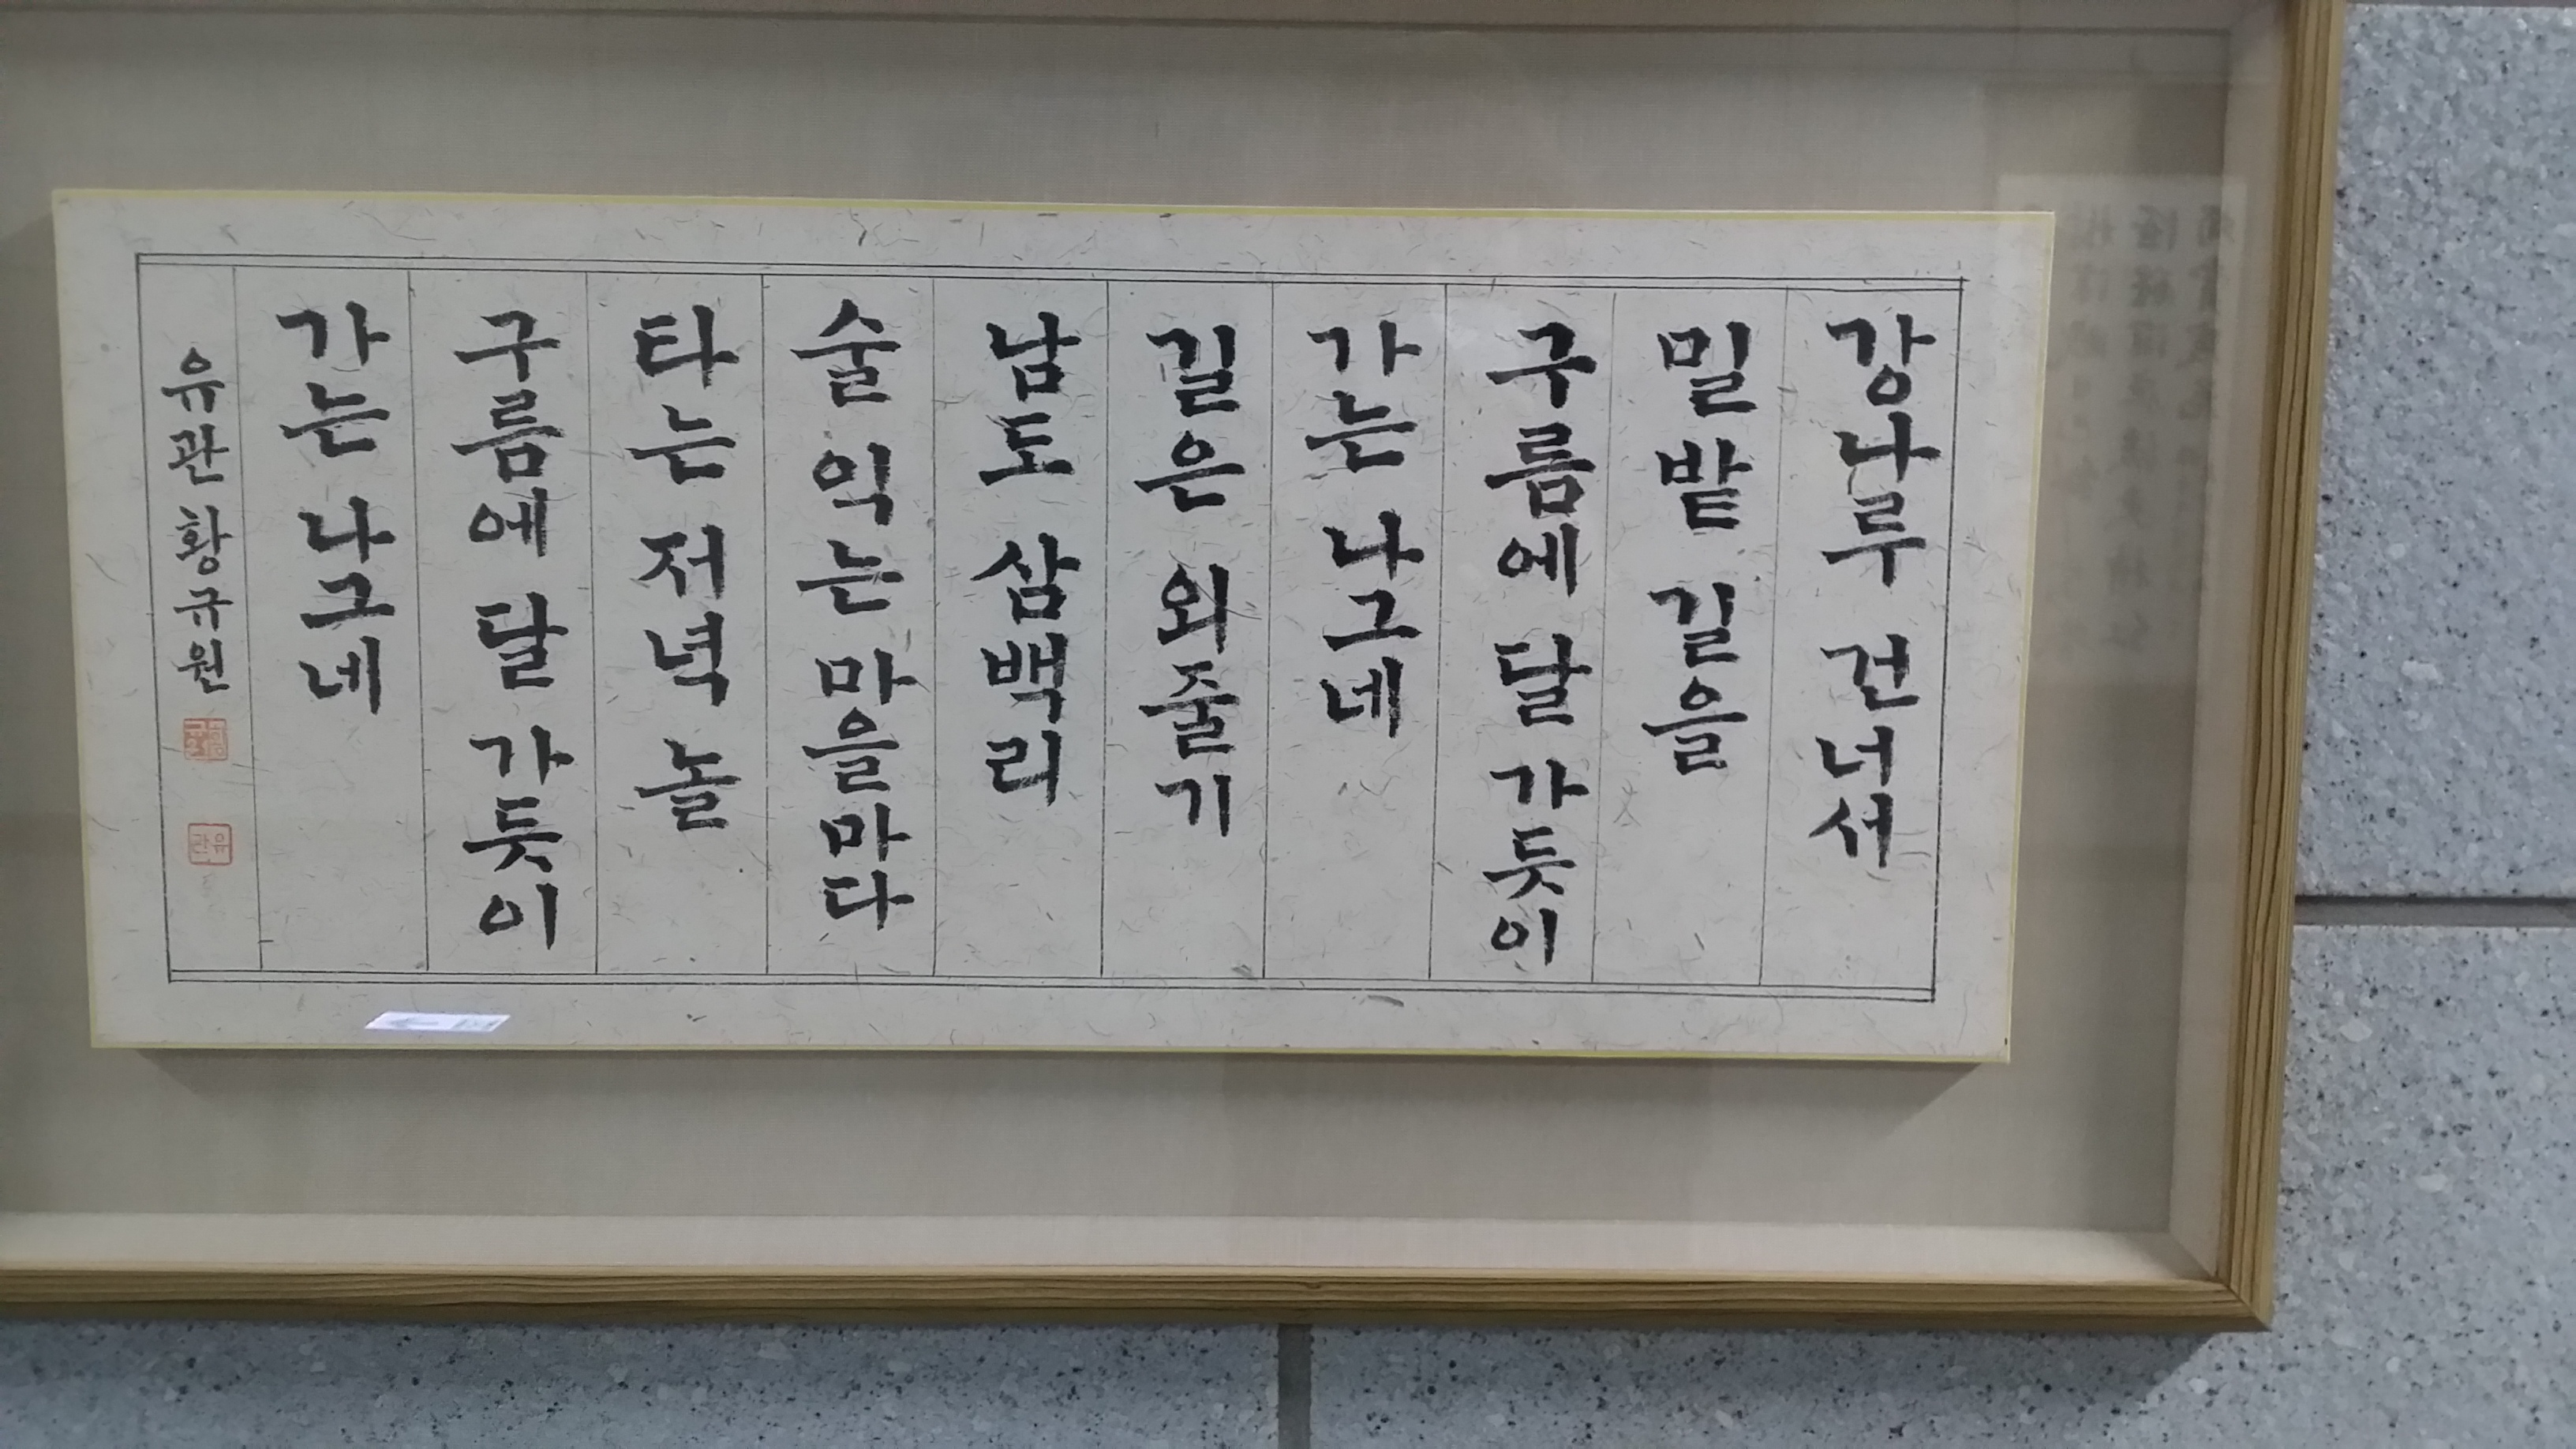 강나루 건너서
밀밭 길을
구름에 달 가듯이
가는 나그네
길은 외줄기
남도 삼백리
술 익는 마을마다
타는 저녁 놀
구름에 달 가듯이
가는 나그네
유관 황규원
유관